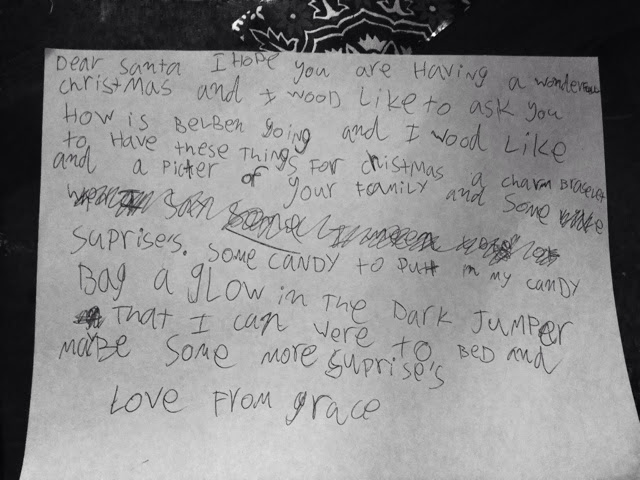 Dear Santa I Hope you are Having a wonderfull
christmas and I wood Like to ask you
How is BelBen going and I wood Like
to Have these things For christmas a charm Bracelet
and a picter of your Family and some
suprise's. some CANDY to putt in my CANDY
BAg a gLow in The DArk JumPer
That I can were to BeD and
maBe some more suprise's
Love From grace